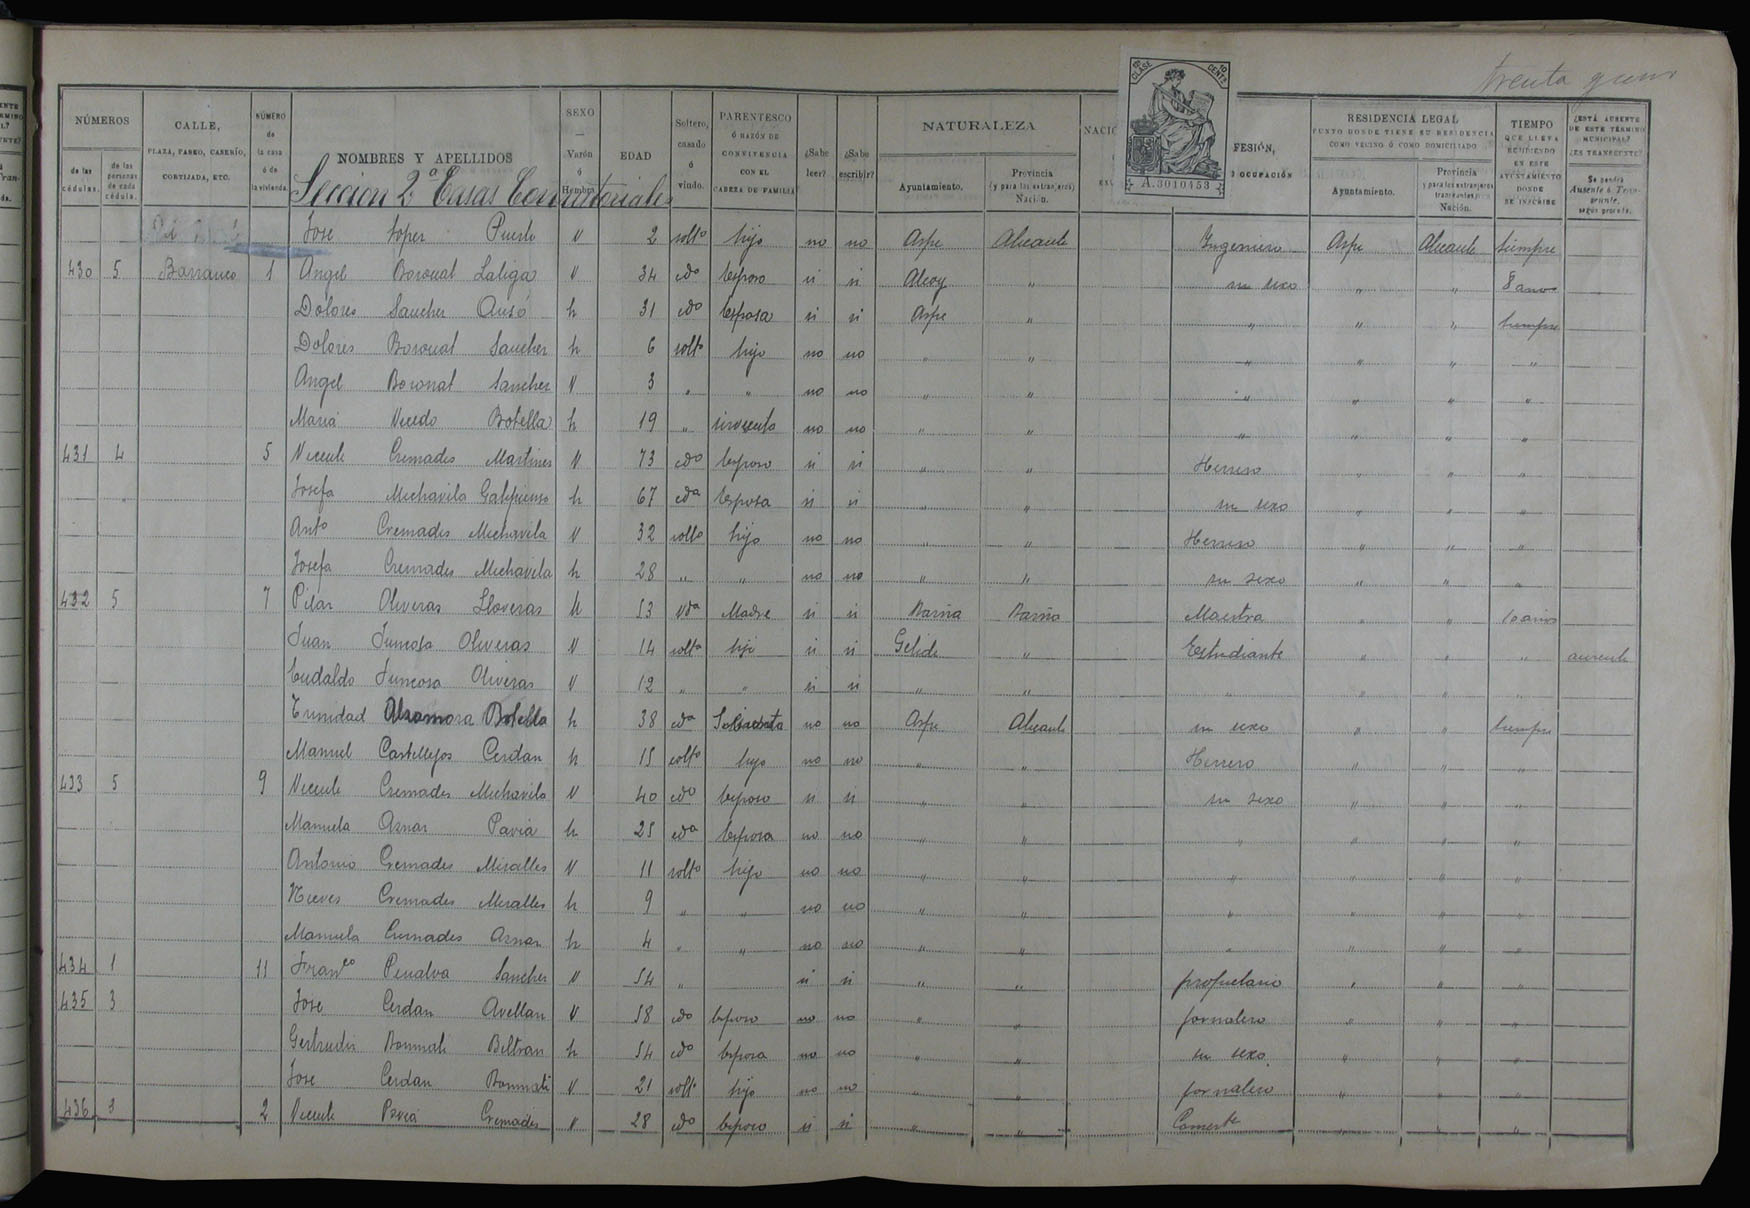 trenta
NÚMEROS
de las cédulas.
de las personas de cada cédula.
CALLE, PLAZA, PASEO, CASERÍO, CORTIJADA, ETC.
NÚMERO de la casa ó de la vivienda.
NOMBRES Y APELLIDOS
SEXO — Varón ó Hembra
EDAD
Soltero, casado ó viudo.
PARENTESCO Ó RAZÓN DE CONVIVENCIA CON EL CABEZA DE FAMILIA
¿Sabe leer?
¿Sabe escribir?
NATURALEZA
Ayuntamiento.
Provincia (y para los extranjeros) Nación.
NACIO
18ª CLASE 10 CENTS
A.3010453
FESIÓN,
OCUPACIÓN
RESIDENCIA LEGAL
PUNTO DONDE TIENE SU RESIDENCIA COMO VECINO Ó COMO DOMICILIADO
Ayuntamiento.
Provincia y para los extranjeros transeuntes, Nación.
TIEMPO QUE LLEVA RESIDIENDO EN ESTE AYUNTAMIENTO DONDE SE INSCRIBE
¿ESTÁ AUSENTE DE ESTE TÉRMINO MUNICIPAL? ¿ES TRANSEUNTE?
Se pondrá Ausente ó Transeunte, según proceda.
Seccion 2ª Casas Consistoriales
Jose Lopez Puerto v 2 solto hijo no no Aspe Alicante Ingeniero Aspe Alicante siempre
430 5 Barranco 1 Angel Boronat Laliga v 34 cdo Esposo si si Alcoy " su sexo " " 8 años
Dolores Sanchez Ausó h 31 cdo Esposa si si Aspe " " " " siempre
Dolores Boronat Sanchez h 6 solto hijo no no " " " " " "
Angel Boronat Sanchez v 3 " " no no " " " " " "
Maria Vicedo Botella h 19 " sirvienta no no " " " " " "
431 4 5 Vicente Cremades Martinez v 73 cdo Esposo si si " " Herrero " " "
Josefa Mechavila Galipienso h 67 cda Esposa si si " " su sexo " " "
Anto Cremades Mechavila v 32 solto hijo no no " " Herrero " " "
Josefa Cremades Mechavila h 28 " " no no " " su sexo " " "
432 5 7 Pilar Oliveras Lloveras h 53 vda Madre si si Barña Barña Maestra " " 10 años
Juan Juncosa Oliveras v 14 solto hijo si si Gelida " Estudiante " " " ausente
Eudaldo Juncosa Oliveras v 12 " " si si " " " " " "
Trinidad Alzamora Botella h 38 cda Sirvienta no no Aspe Alicante su sexo " " siempre
Manuel Castillejos Cerdan h 15 solto hijo no no " " Herrero " " "
433 5 9 Vicente Cremades Mechavila v 40 cdo Esposo si si " " su sexo " " "
Manuela Aznar Pavia h 25 cda Esposa no no " " " " " "
Antonio Cremades Miralles v 11 solto hijo no no " " " " " "
Nieves Cremades Miralles h 9 " " no no " " " " " "
Manuela Cremades Aznar h 4 " " no no " " " " " "
434 1 11 Franco Penalva Sanchez v 54 " si si " " propietario " " "
435 3 Jose Cerdan Avellan v 58 cdo Esposo no no " " jornalero " " "
Gertrudis Bonmati Beltran h 54 cdo Esposa no no " " su sexo " " "
Jose Cerdan Bonmati v 21 solto hijo no no " " jornalero " " "
436 3 2 Vicente Pavia Cremades v 28 cdo Esposo si si " " Comerte " " "